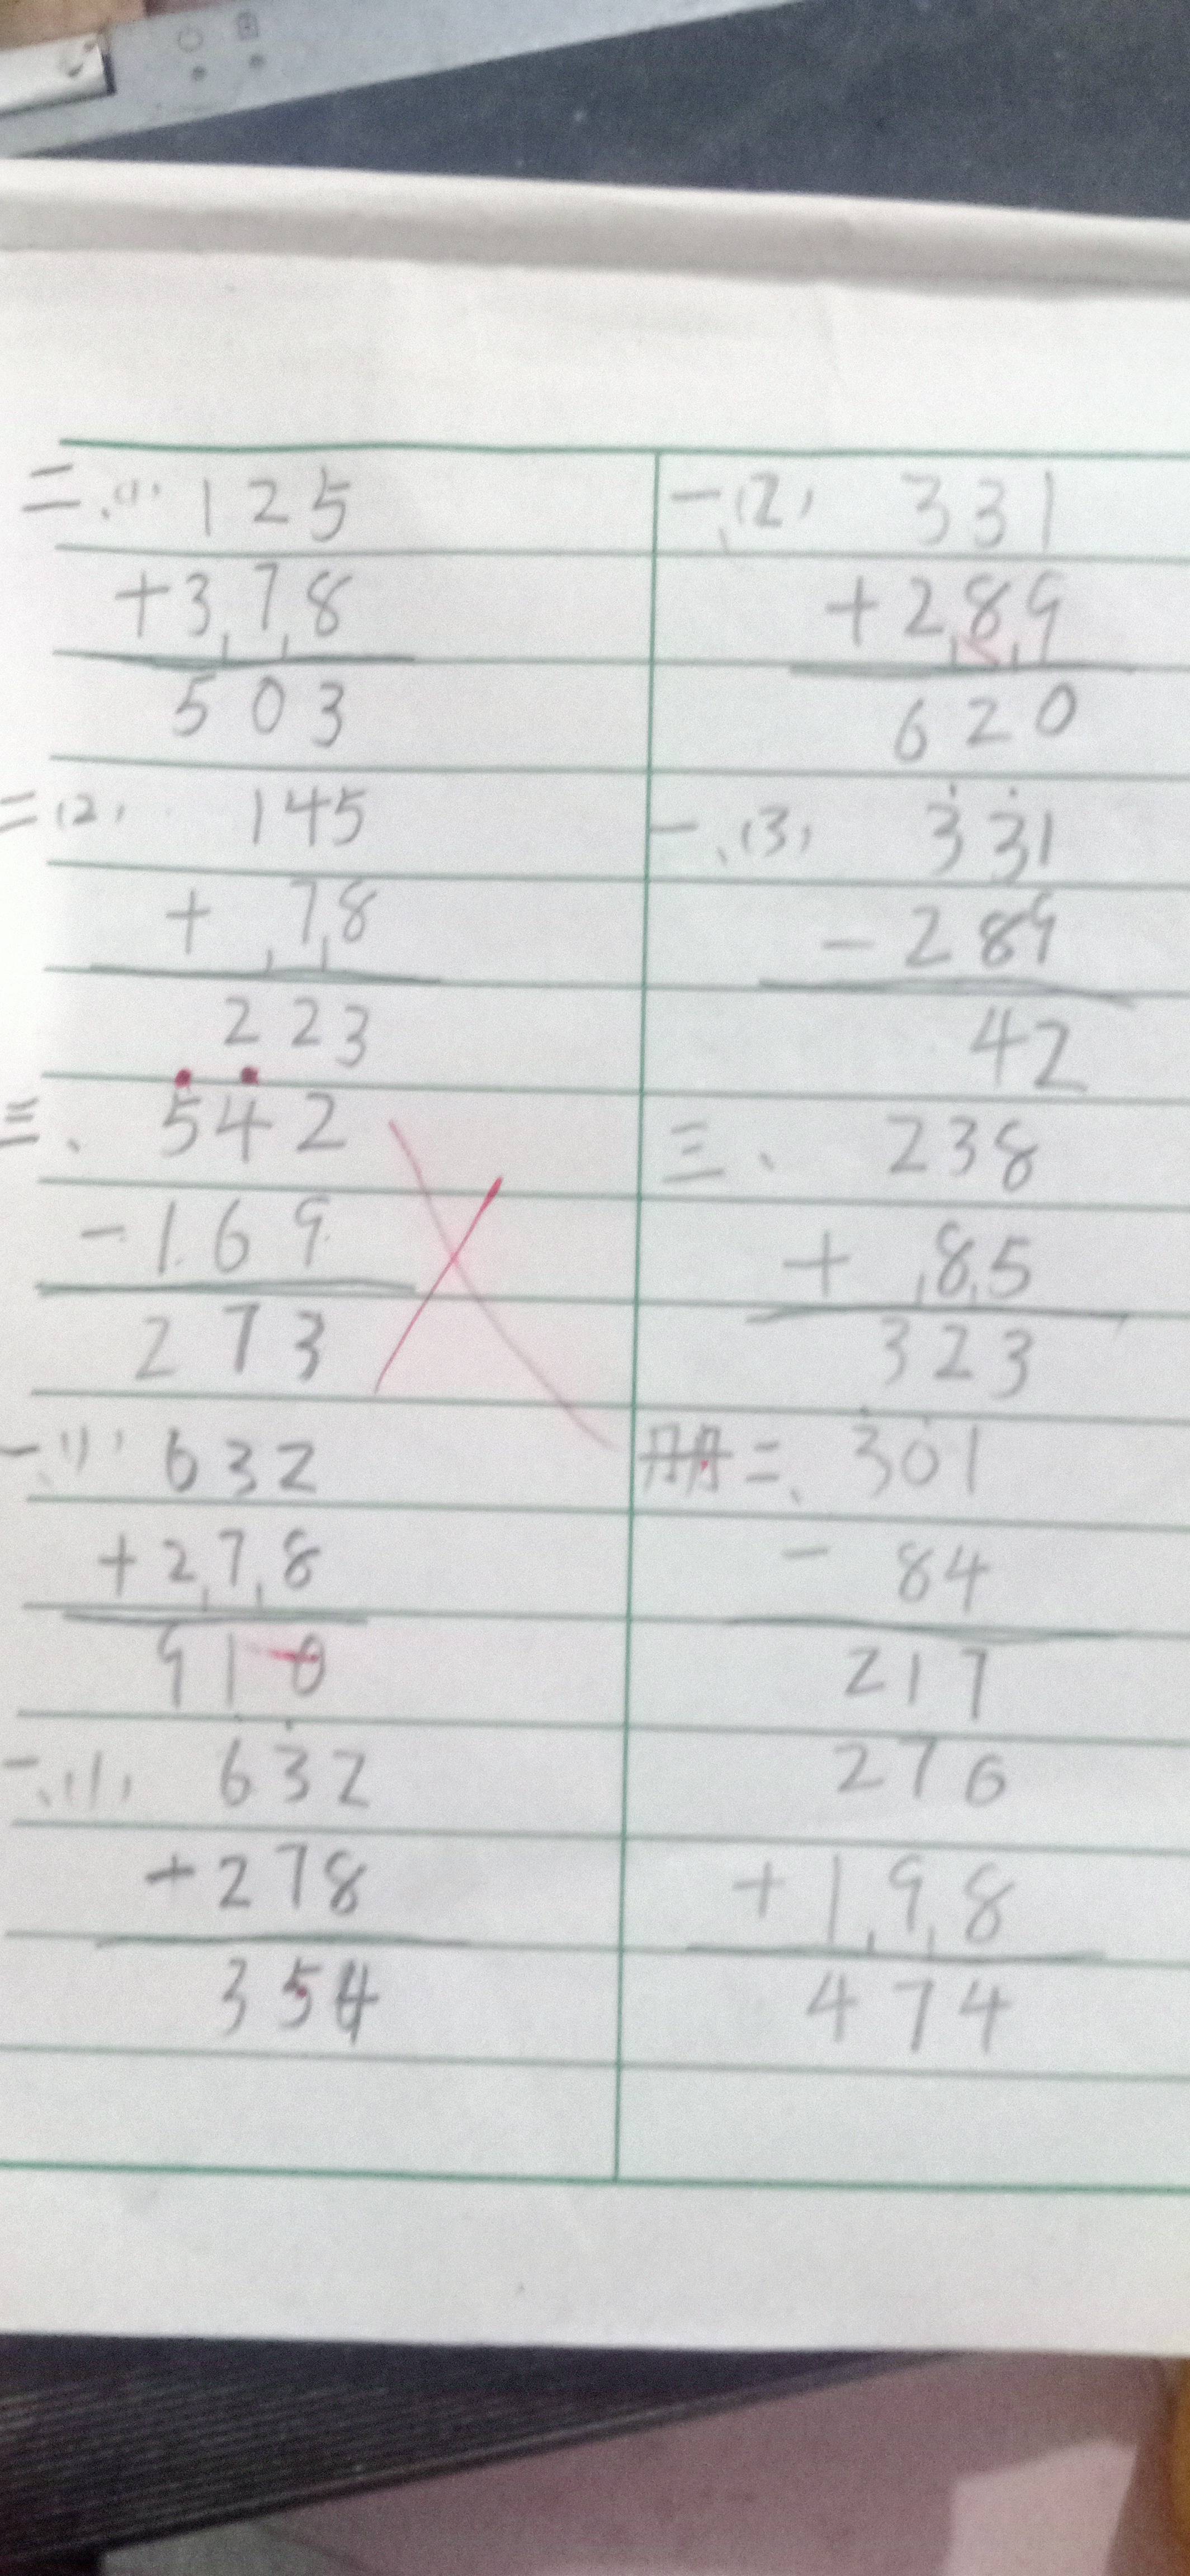 二、(1) 125
+378
503
二(2) 145
+ 78
223
三、 542
-169
273
一、(1) 632
+278
910
一、(1) 632
+278
354
一、(2) 331
+289
620
一、(3) 331
- 289
42
三、 238
+ 85
323
册二、 301
- 84
217
276
+198
474